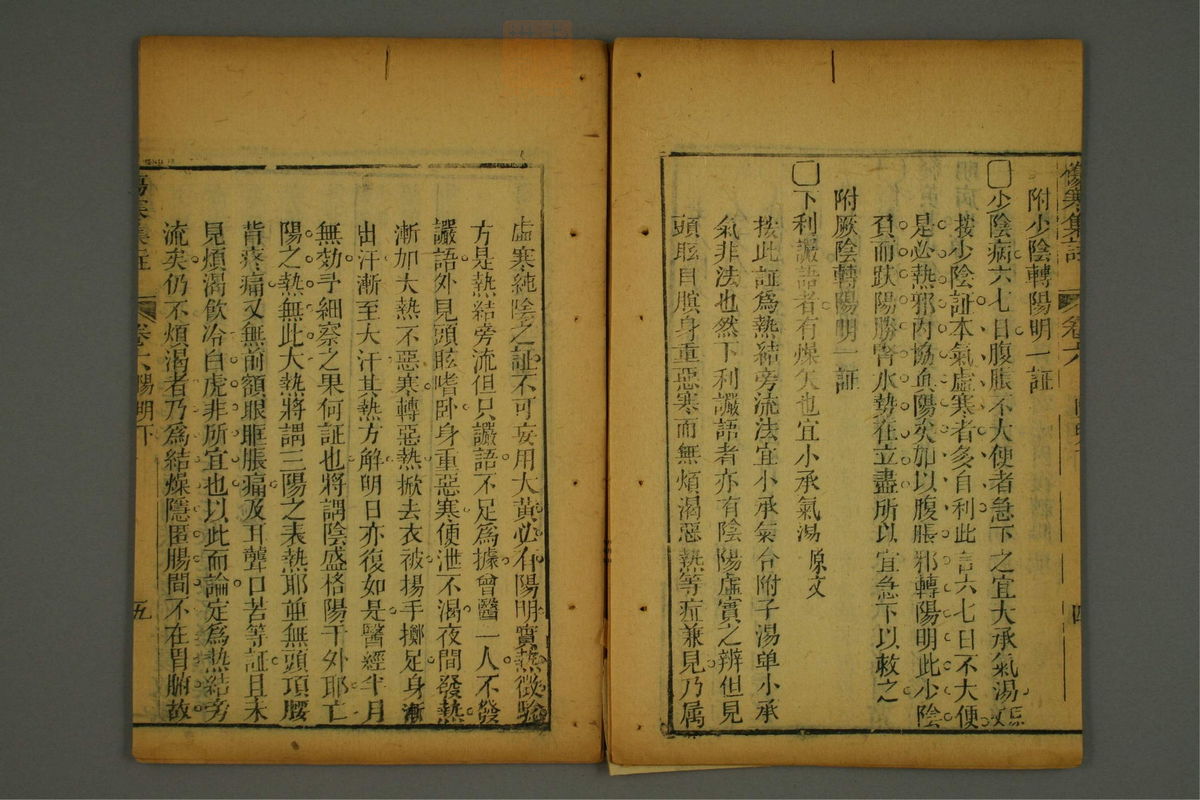 傷寒集註
卷六
四
附少陰轉陽明一証
少陰病六七日腹脹不大便者急下之宜大承氣湯原文
按少陰証本氣虛寒者多自利此言六七日不大便
是必熱邪內協魚陽矣加以腹脹邪轉陽明此少陰
負而趺陽勝腎水勢在立盡所以宜急下以救之
附厥陰轉陽明一証
下利讝語者有燥矢也宜小承氣湯 原文
按此証爲熱結旁流法宜小承氣合附子湯单小承
氣非法也然下利讝語者亦有陰陽虛實之辨但見
頭眩目瞑身重惡寒而無煩渴惡熱等症兼見乃属
虛寒純陰之証不可妄用大黃必有陽明實熱徵驗
方是熱結旁流但只讝語不足爲據曾醫一人不發
讝語外見頭眩嗜卧身重惡寒便泄不渴夜間發熱
漸加大熱不惡寒轉惡熱掀去衣被揚手擲足身漸
出汗漸至大汗其熱方解明日亦復如是醫經半月
無効予細察之果何証也將謂陰盛格陽于外耶亡
陽之熱無此大熱將謂三陽之表熱耶並無頭項腰
背疼痛又無前額眼眶脹痛及耳聾口苦等証且未
見煩渴飲冷白虎非所宜也以此而論定爲熱結旁
流矣仍不煩渴者乃爲結燥隱匿腸間不在胃腑故
傷寒集註
卷六
陽明下
五